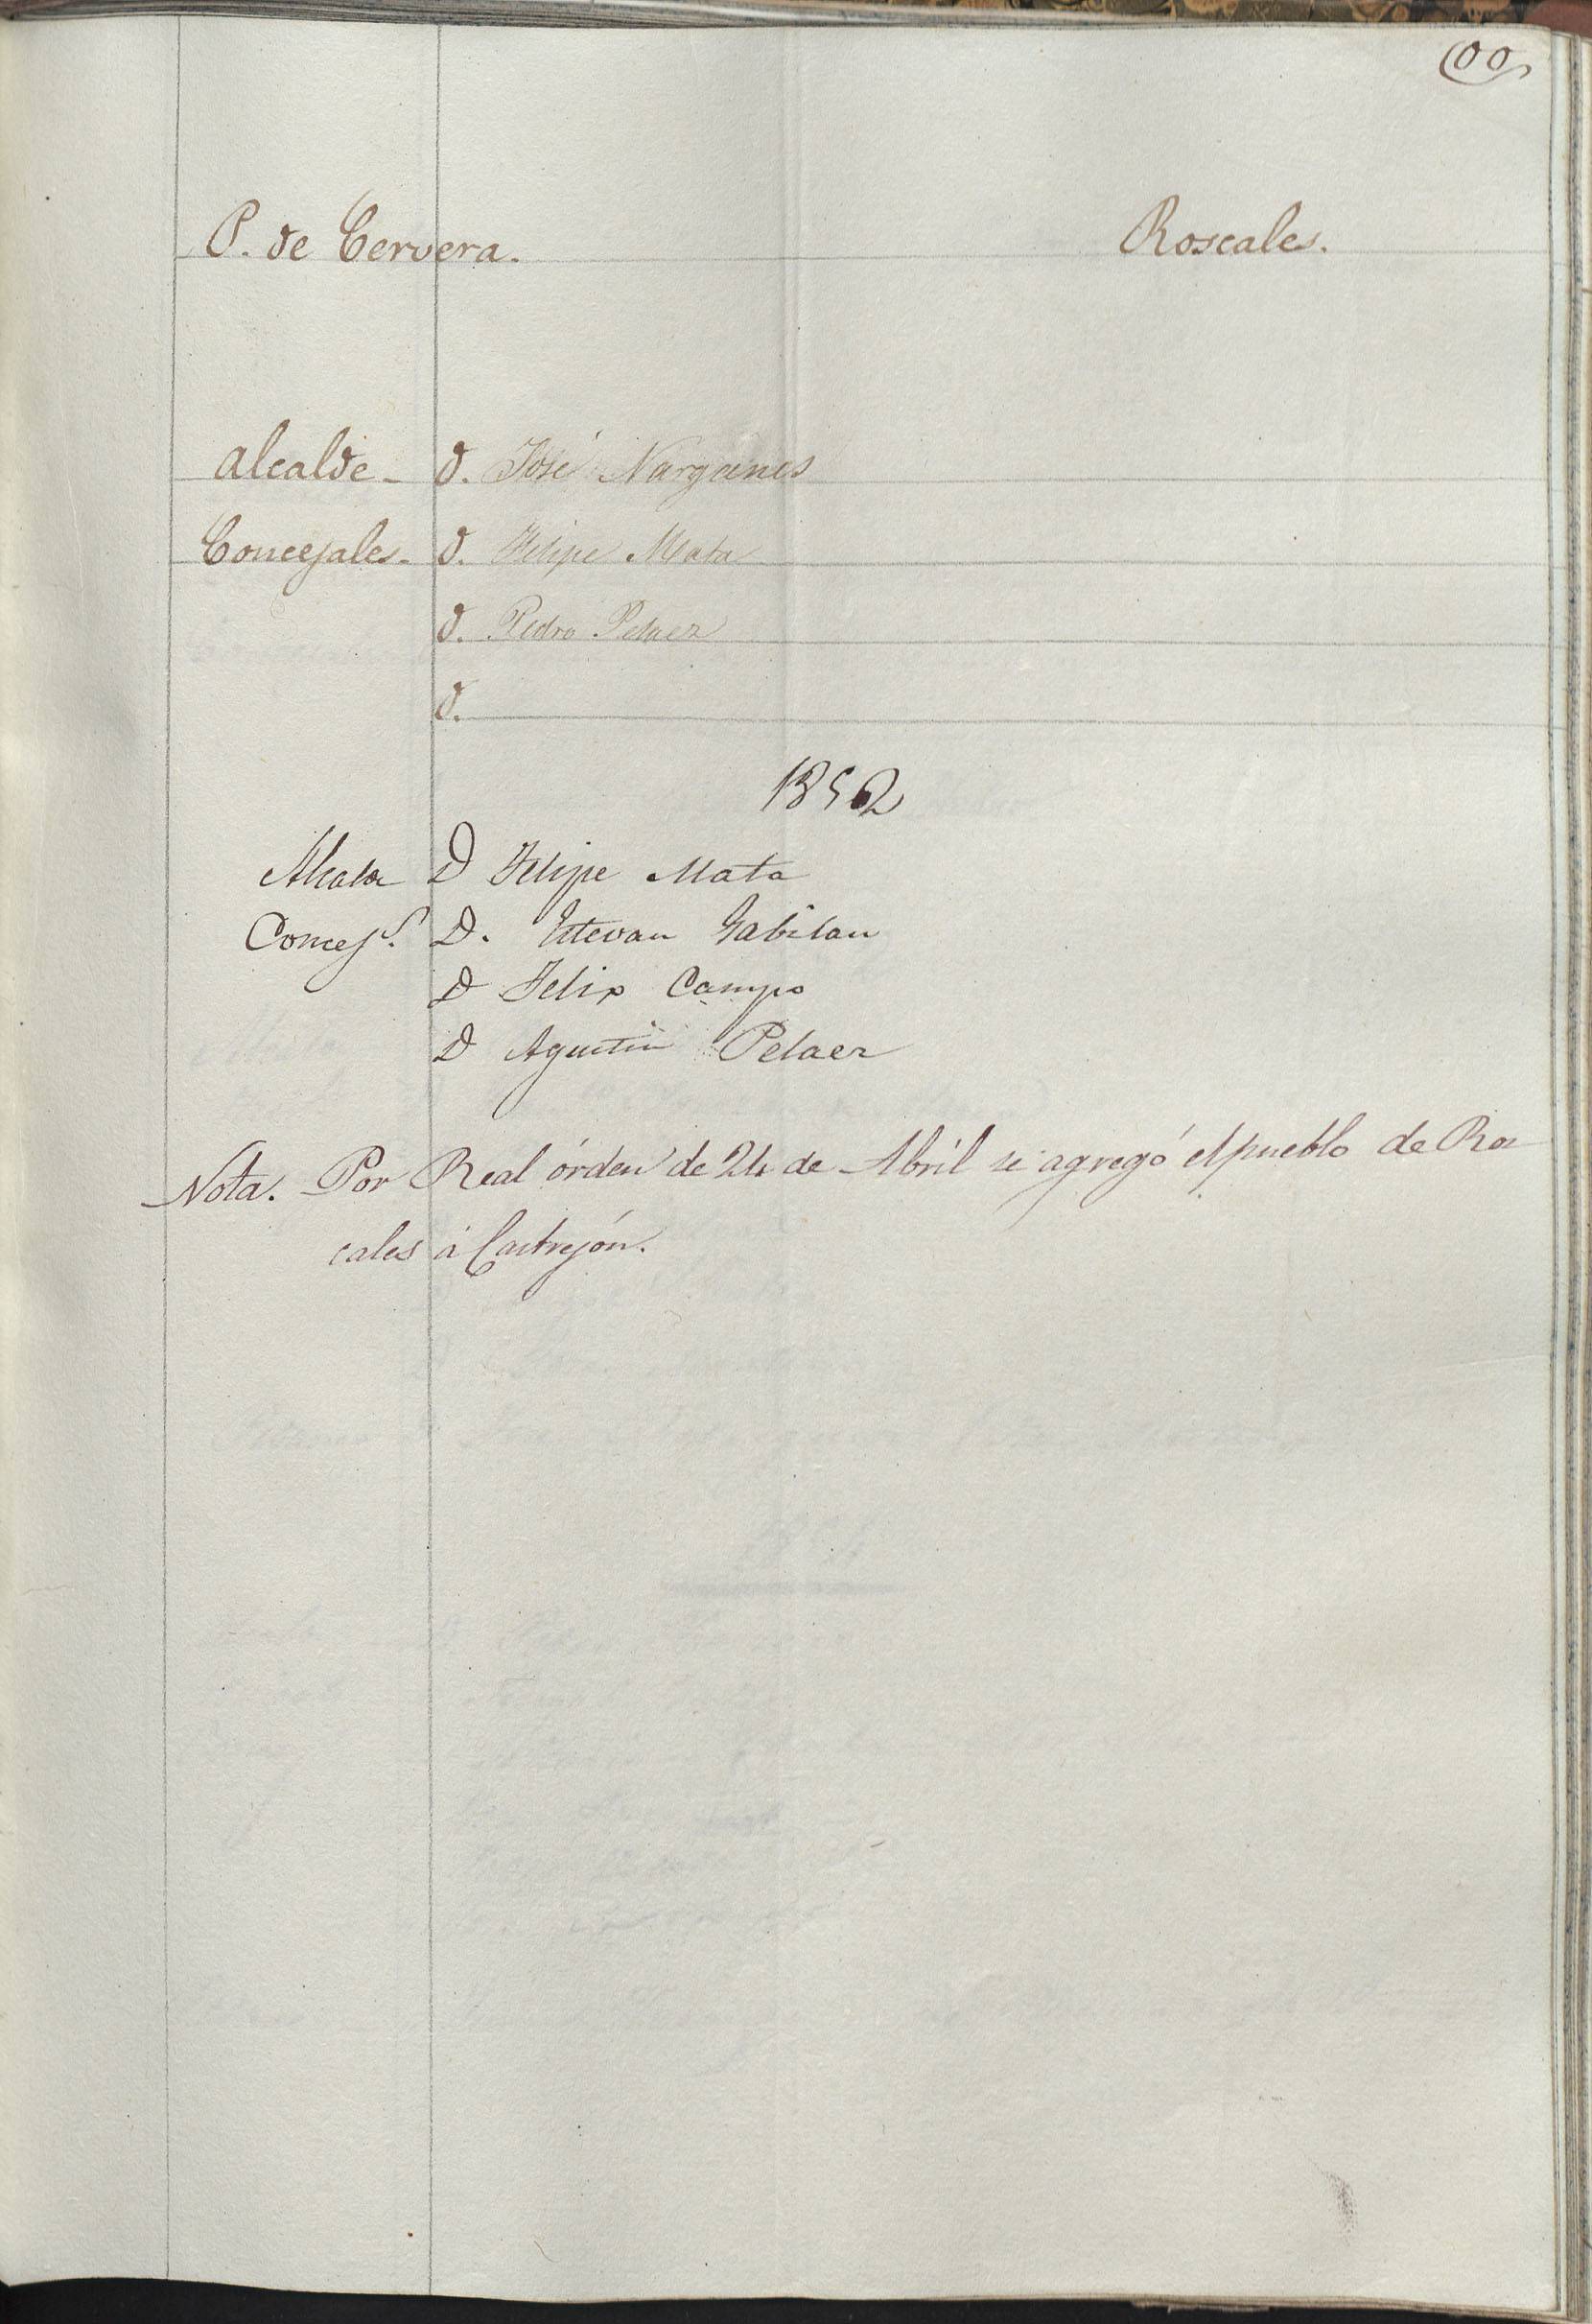 100
P. de Cervera. Roscales.
Alcalde - D. José Narganes
Concejales - D. Felipe Mata
D. Pedro Pelaez
D.
1852
Alcalde D Felipe Mata
Concej.s D. Estevan Gabilan
D Felix Campo
D Agustin Pelaez
Nota. Por Real órden de 24 de Abril se agregó el pueblo de Ros
cales á Castrejón.